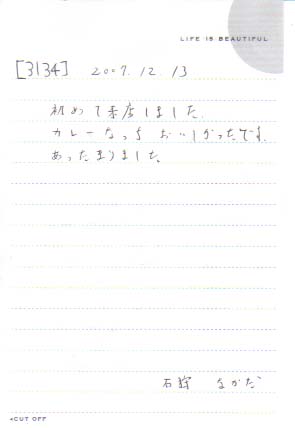 LIFE IS BEAUTIFUL
[3134] 2007.12.13
初めて来店しました.
カレーなっち おいしかったです.
あったまりました.
石狩 なかだ
◂CUT OFF